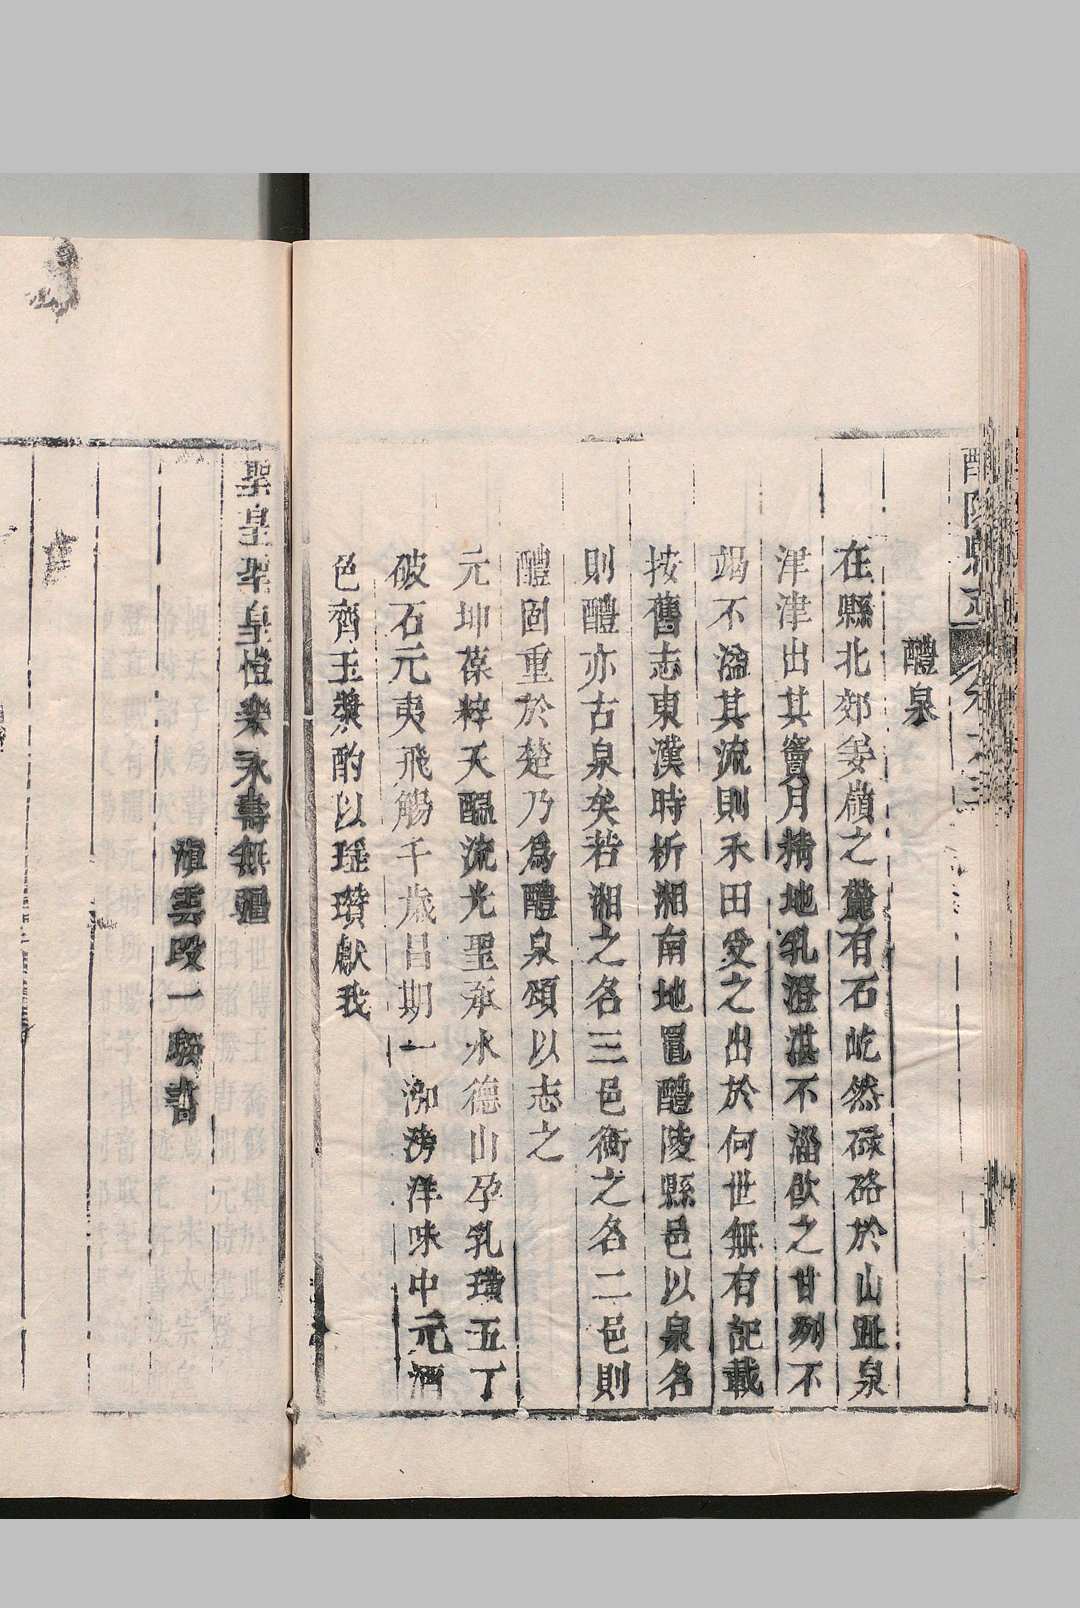 醴陵縣志
醴泉
在縣北郊姜嶺之麓有石屹然硌硌於山趾泉
津津出其竇月精地乳澄湛不淄飲之甘冽不
竭不溢其流則禾田受之出於何世無有記載
按舊志東漢時析湘南地置醴陵縣邑以泉名
則醴亦古泉矣若湘之名三邑衡之名二邑則
醴固重於楚乃為醴泉頌以志之
元坤葆粹天醞流光聖承水德山孕乳璜五丁
破石元夷飛觴千歲昌期一泖滂洋味中元酒
色齊玉漿酌以瑤瓚獻我
聖皇聖皇愷樂永壽無疆
滇雲段一騤書